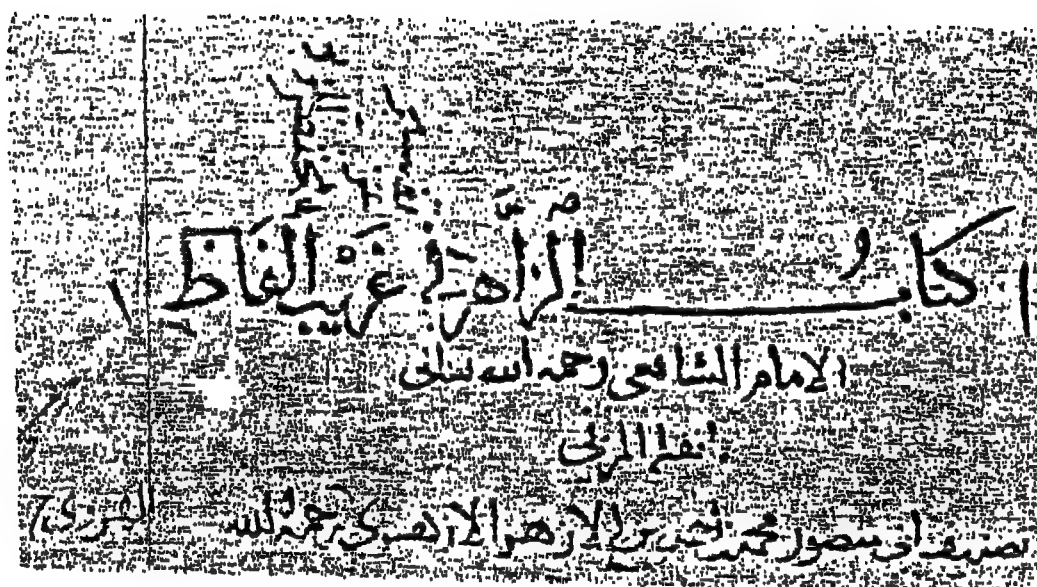 كتاب الزاهر في غريب ألفاظ
الامام الشافعي رحمه الله تعالى
نقل المزني
تصنيف ابي منصور محمد بن احمد بن الازهر الازهري رحمه الله